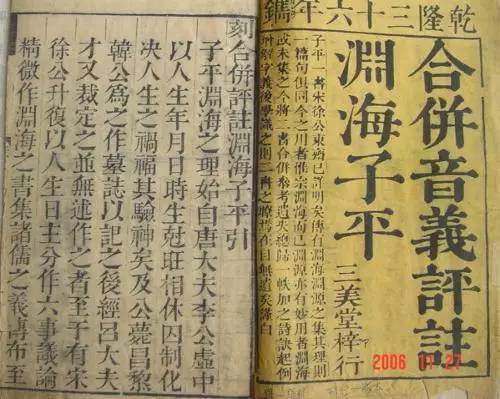 乾隆三十六年鐫
合併音義評註
淵海子平
三美堂梓行
子平一書宋徐公東齋已詳明矣傳有淵海淵源之集其理則
一篇句俱同今之用者惟宗淵海而已淵源亦有妙用者淵海
或未集之今將二書合併參考遺失總歸一帙加之詩訣起例
解字義後學識之則二書之瞭然在目無遺矣謹白
刻合併評註淵海子平引
子平淵海之理始自唐大夫李公虛中
以人生年月日時生尅旺相休囚制化
决人生之禍福其驗神矣及公薨昌黎
韓公為之作墓誌以記之後經呂大夫
才又裁定之並無述作之者至于有宋
徐公升復以人生日主分作六事議論
精微作淵海之書集諸儒之義傳布至
2006 01 27